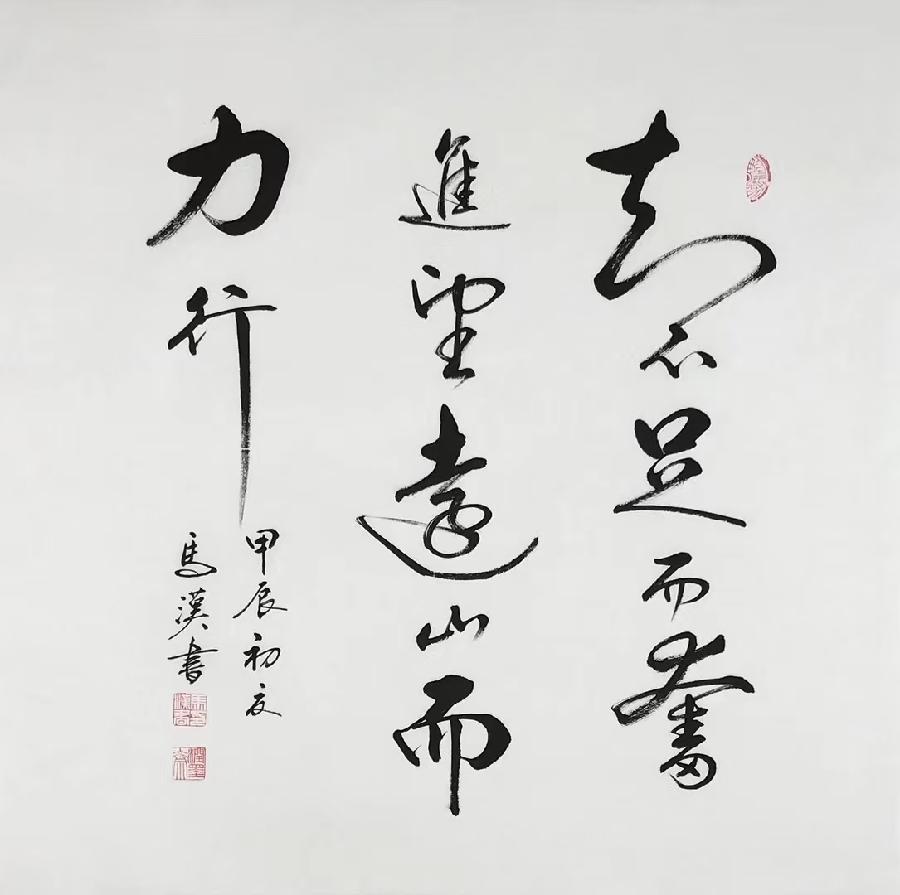 知不足而奮
進望遠山而
力行
甲辰初夏
馬漢書